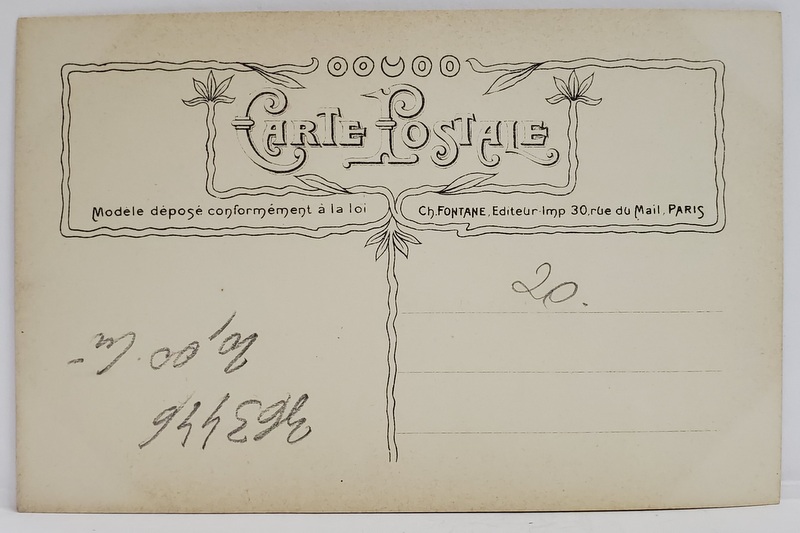 CARTE POSTALE
Modèle déposé conformément à la loi
Ch. FONTANE, Editeur-Imp 30, rue du Mail, PARIS
20.
363446
20,00 lei